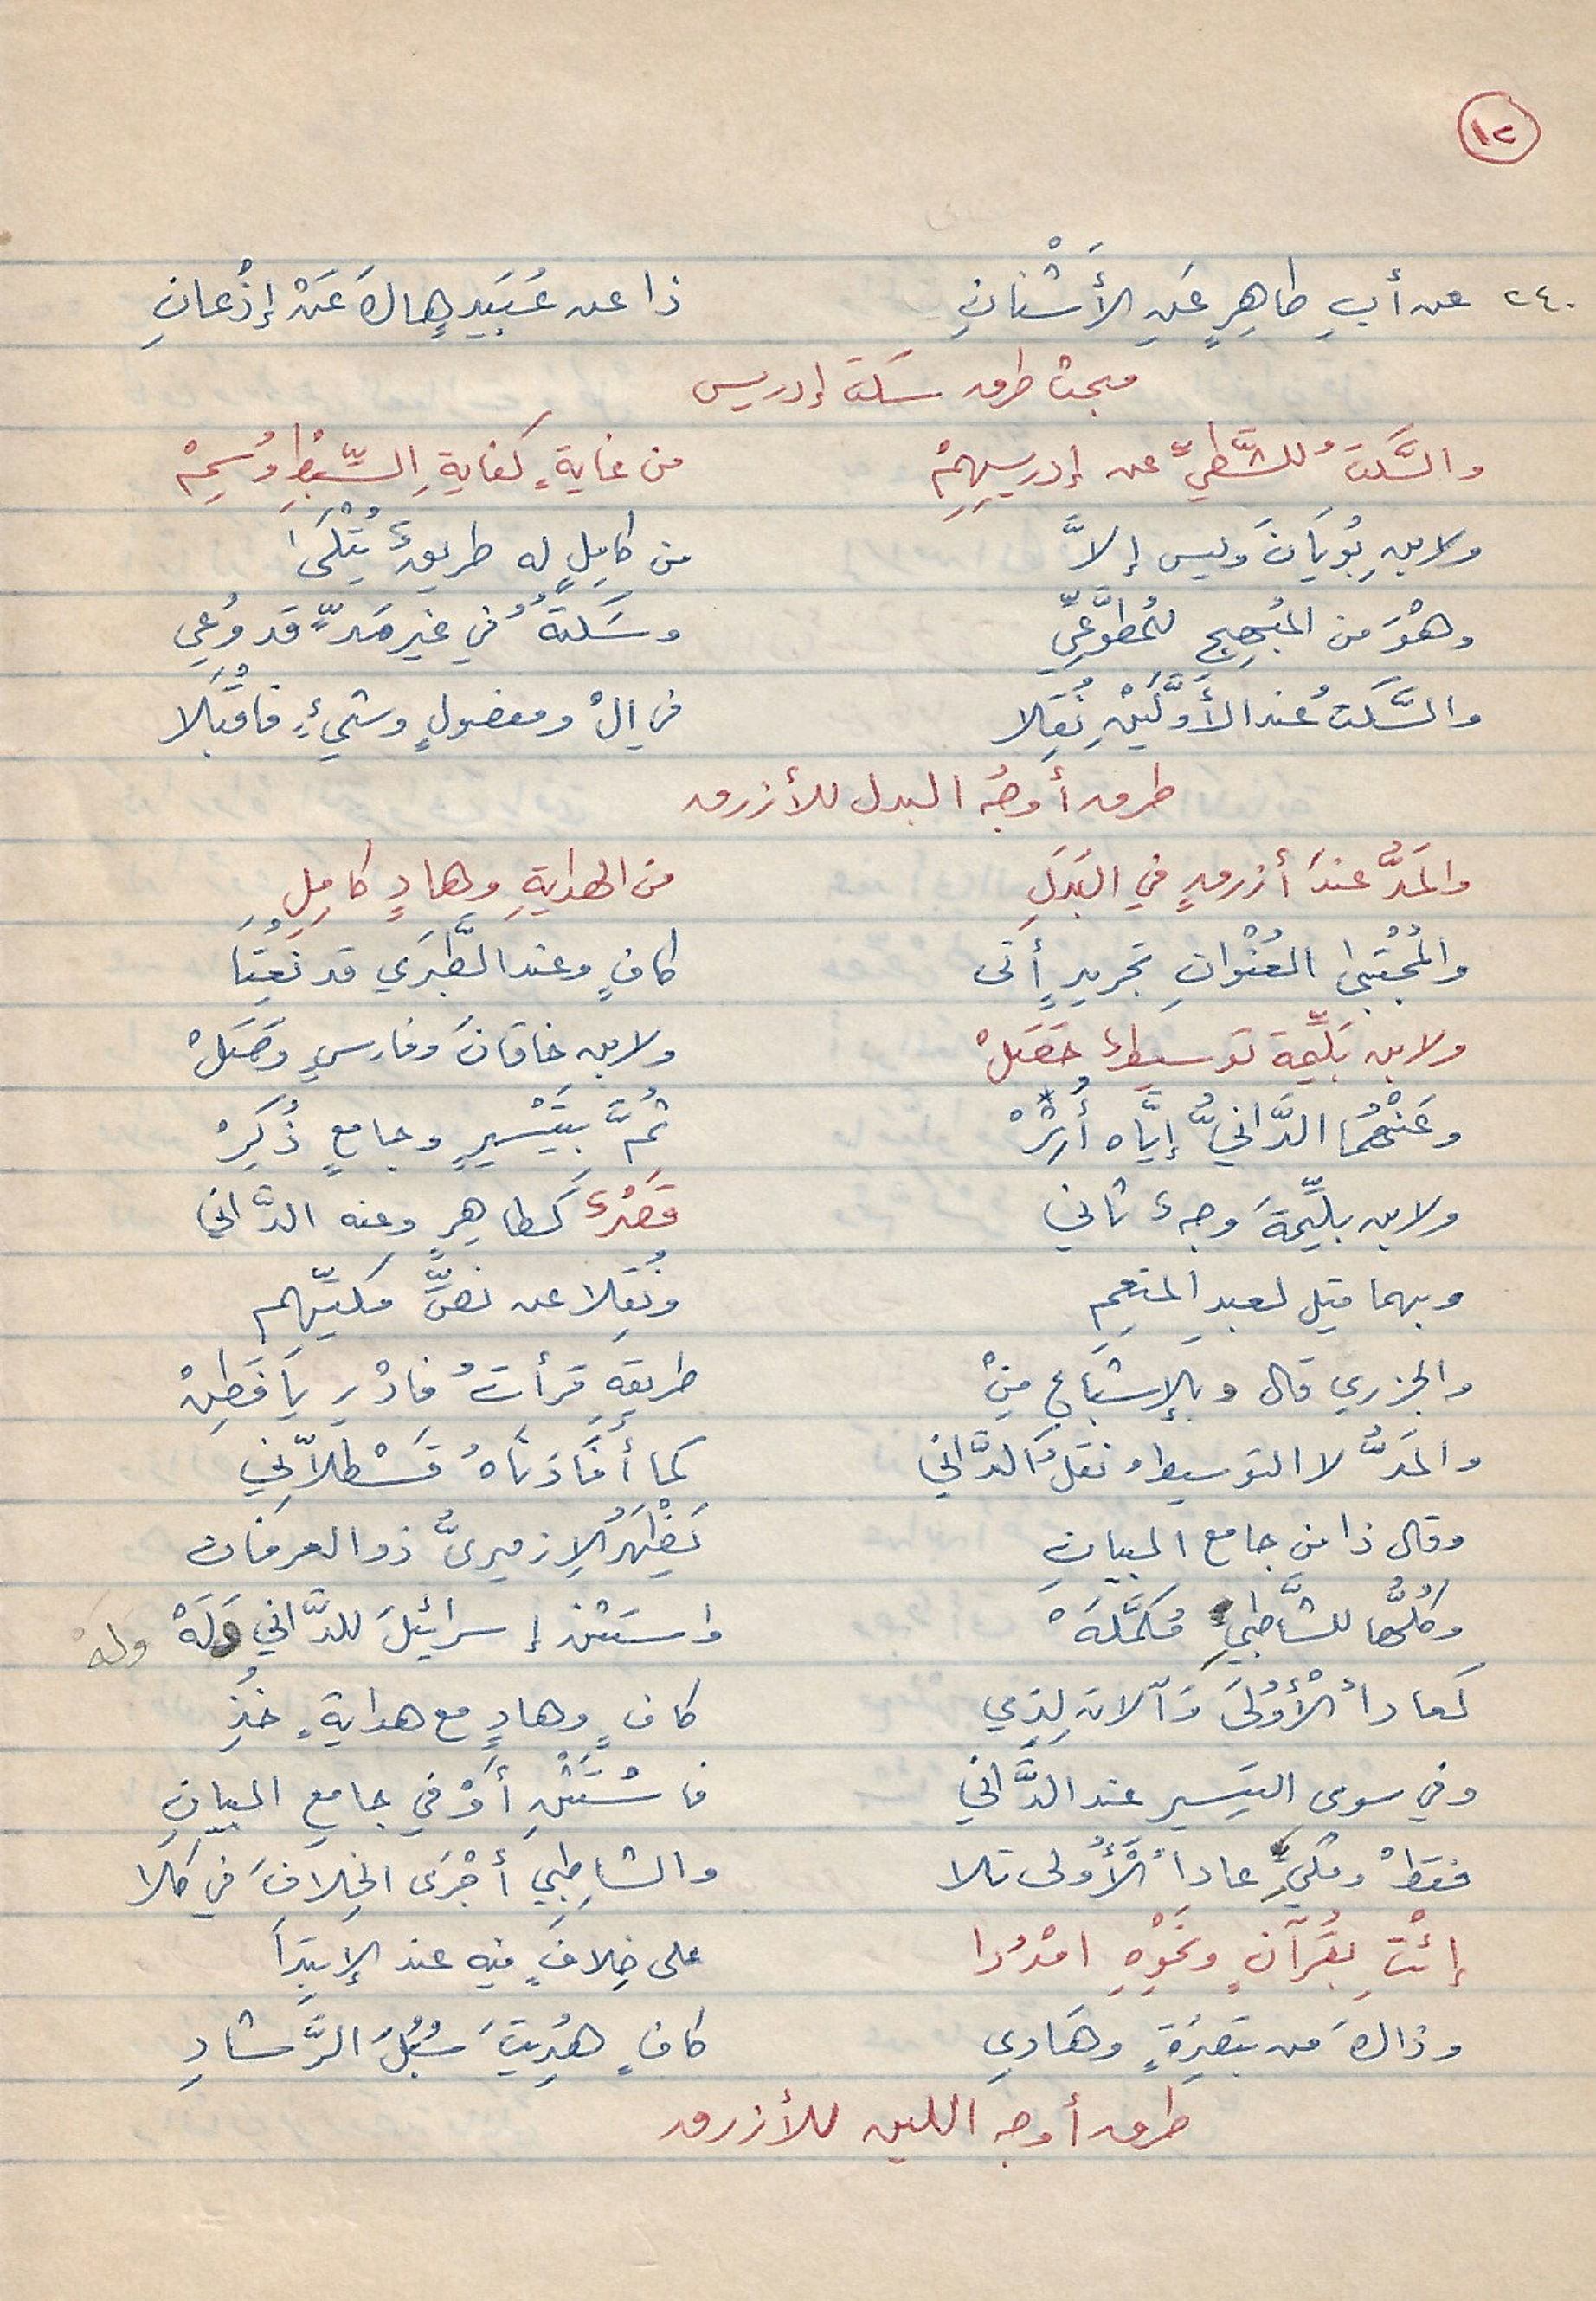 ١٢
٢٤٠ عن أبي طاهِرٍ عَنِ الأَشْنانِ ذا عن عُبَيدٍ هاكَ عَنْ إذْعانِ
مبحث طرق سكت إدريس
والسَّكتُ للشَّطِّيِّ عن إدريسِهِمْ من غايةٍ كفايةِ السِّبْطِ وُسِمْ
ولابنِ بُويَانَ وليس إلاَّ من كامِلٍ له طريقٌ يُتْلَى
وهْوَ من المُبهِجِ للمُطَّوِّعِيِّ وسَكتُهُ في غيرِ مَدٍّ قد وُعِي
والسَّكتُ عند الأَوَّلَيْنِ نُقِلا في الْ ومفصولٍ وشيءٍ فاقْبَلا
طرق أوجُه البدل للأزرق
والمَدُّ عندَ أزرقٍ في البَدَلِ من الهدايةِ وهادٍ كامِلِ
والمُجْتَبَى العُنْوانِ تجريدٍ أتى كافٍ وعند الطَّبَرَي قد نُعِتَا
ولابن بَلِّيمة توسيطٌ حَصَلْ ولابن خاقانَ وفارسٍ وَصَلْ
وعَنْهُما الدَّانيُّ إيَّاه أُثِرْ ثُمَّ بتَيْسيرٍ وجامعٍ ذُكِرْ
ولابن بلِّيمَةَ وجهٌ ثاني قَصْرٌ كَطاهِرٍ وعنه الدَّاني
وبهما قيل لعبدِ المنعِمِ ونُقِلا عن نصِّ مكيِّهم
والجزري قال وبالإشباعِ مِنْ طريقِهِ قرأتُ فادْرِ يَا فَطِنْ
والمَدُّ لا التوسيطُ نَقلُ الدَّاني كما أَفَادَنَاهُ قَسْطَلاَّنِي
وقال ذا من جامع البيانِ يَظْهَرُ الإزميريُّ ذو العرفان
وكُلُّها للشَّاطِبيِّ مُكَمَّلَهْ واستثن إسرائيلَ للدَّاني وَلَهْ وله
كعاداً لُأْوْلَى وَآلانَ لِذِي كافٍ وهادٍ مع هدايةٍ خُذِ
وفي سوى التيسير عند الدَّاني فاسْتَثْنِ أَوْ في جامعِ البيانِ
فقطْ ومكيٍّ عاداً لُّأولى تلا والشاطِبي أجْرَى الخِلافَ في كلا
إئْتِ بقُرآنٍ ونَحْوِهِ امْدُدا على خِلافٍ فيه عند الإبتِدَا
وذاكَ من تَبصِرَةٍ وهَادي كافٍ هُدِيتَ سُبُلَ الرَّشادِ
طرق أوجه اللين للأزرق